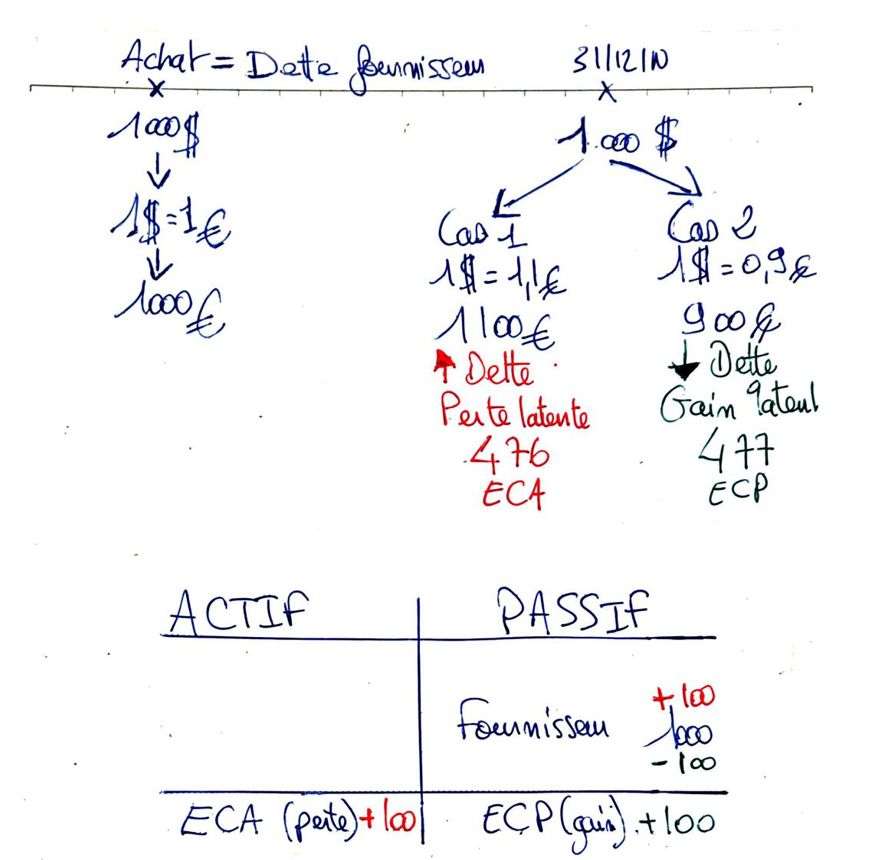 Achat = Dette fournisseur
31/12/N
1000$
1$=1€
1000€
1.000 $
Cas 1
1$=1,1€
1100€
Dette
Perte latente
476
ECA
Cas 2
1$=0,9€
900€
Dette
Gain latent
477
ECP
ACTIF
PASSIF
+100
Fournisseur 1000
-100
ECA (perte)+100
ECP(gain).+100